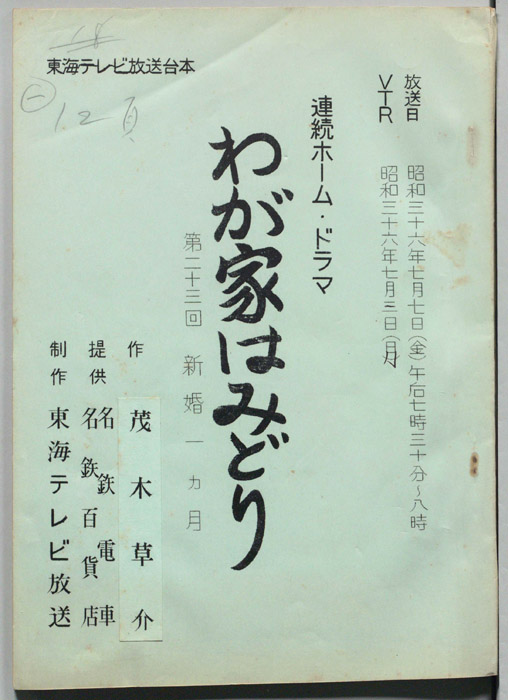 放送日 昭和三十六年七月七日(金)午后七時三十分〜八時
VTR 昭和三十六年七月三日(月)
連続ホーム・ドラマ
わが家はみどり
第二十三回 新婚一ヵ月
作 茂木草介
提供 名鉄電車
名鉄百貨店
制作 東海テレビ放送
東海テレビ放送台本
18
一
1.2頁